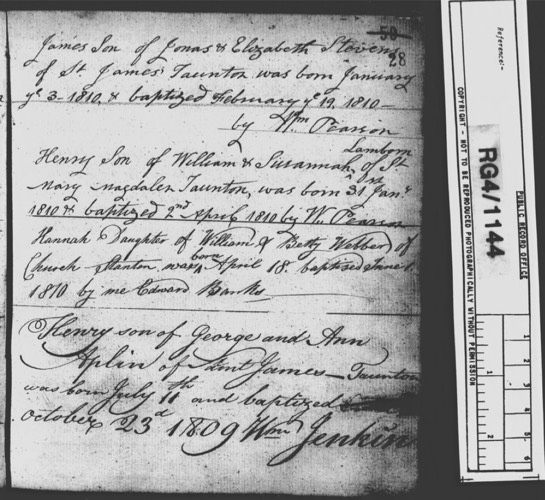 50
28
James Son of Jonas & Elizabeth Stevens
of St. James' Taunton was born January
ye 3- 1810, & baptized February ye 19, 1810-
by Wm Pearson
Henry Son of William & Susannah Lamborn of St.
Mary Magdalen Taunton, was born 31 Jany
1810 & baptized 2nd April 1810 by Wm Pearson
Hannah Daughter of William & Betty Webber of
Church Stanton was born April 18. baptised June 1.
1810 by me Edward Banks
Henry son of George and Ann
Aplin of Saint James - Taunton
was born July 11th and baptized
October 23d 1809 Wm Jenkin
Reference:-
RG4/1144
PUBLIC RECORD OFFICE
COPYRIGHT - NOT TO BE REPRODUCED PHOTOGRAPHICALLY WITHOUT PERMISSION
1
2
1
2
3
4
5
6